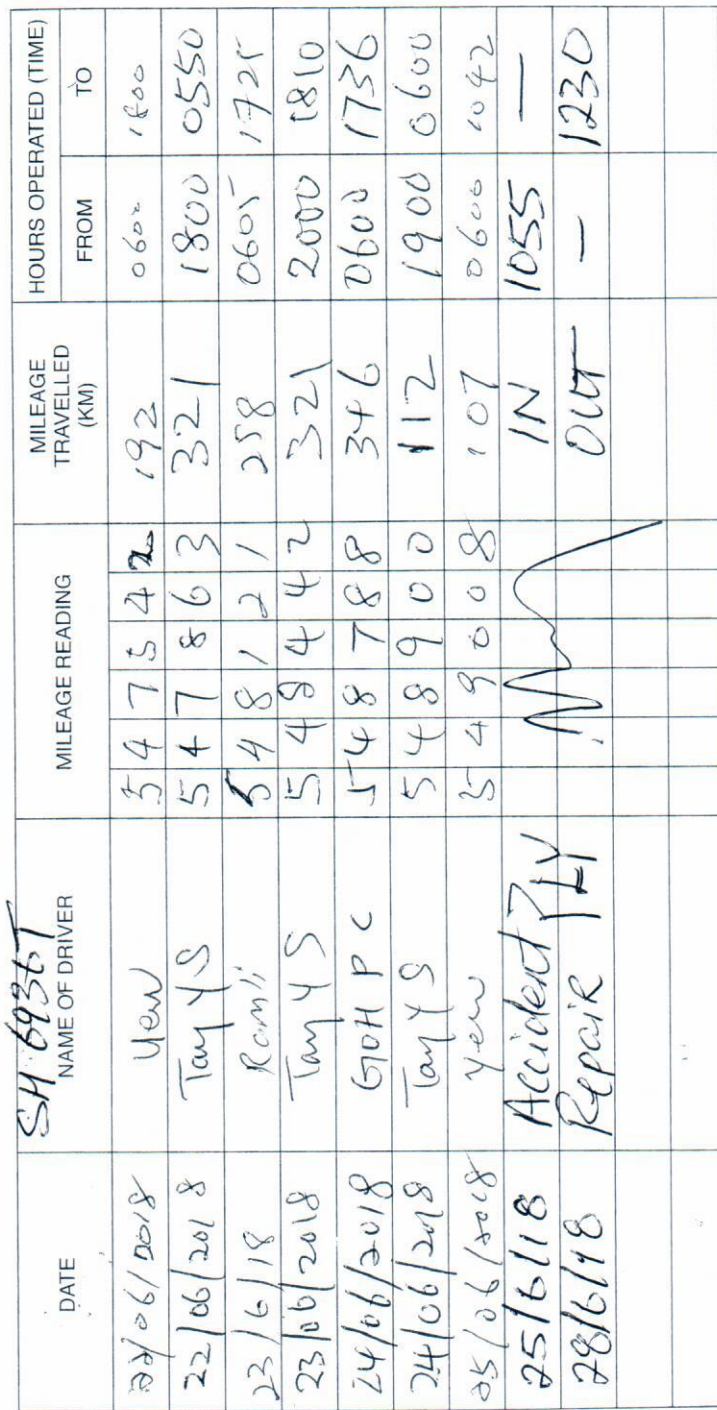 SH 6936T
DATE NAME OF DRIVER MILEAGE READING MILEAGE TRAVELLED (KM) HOURS OPERATED (TIME) FROM TO
22/06/2018 Yew 5 4 7 5 4 2 192 0600 1800
22/06/2018 Tay Y S 5 4 7 8 6 3 321 1800 0550
23/6/18 Ramli 5 4 8 1 2 1 258 0605 1725
23/06/2018 Tay Y S 5 4 8 4 4 2 321 2000 1810
24/06/2018 GOH P C 5 4 8 7 8 8 346 0600 1736
24/06/2018 Tay Y S 5 4 8 9 0 0 112 1900 0600
25/06/2018 Yew 5 4 9 0 0 8 107 0600 1042
25/6/18 Accident IN 1055 —
28/6/18 Repair OUT — 1230